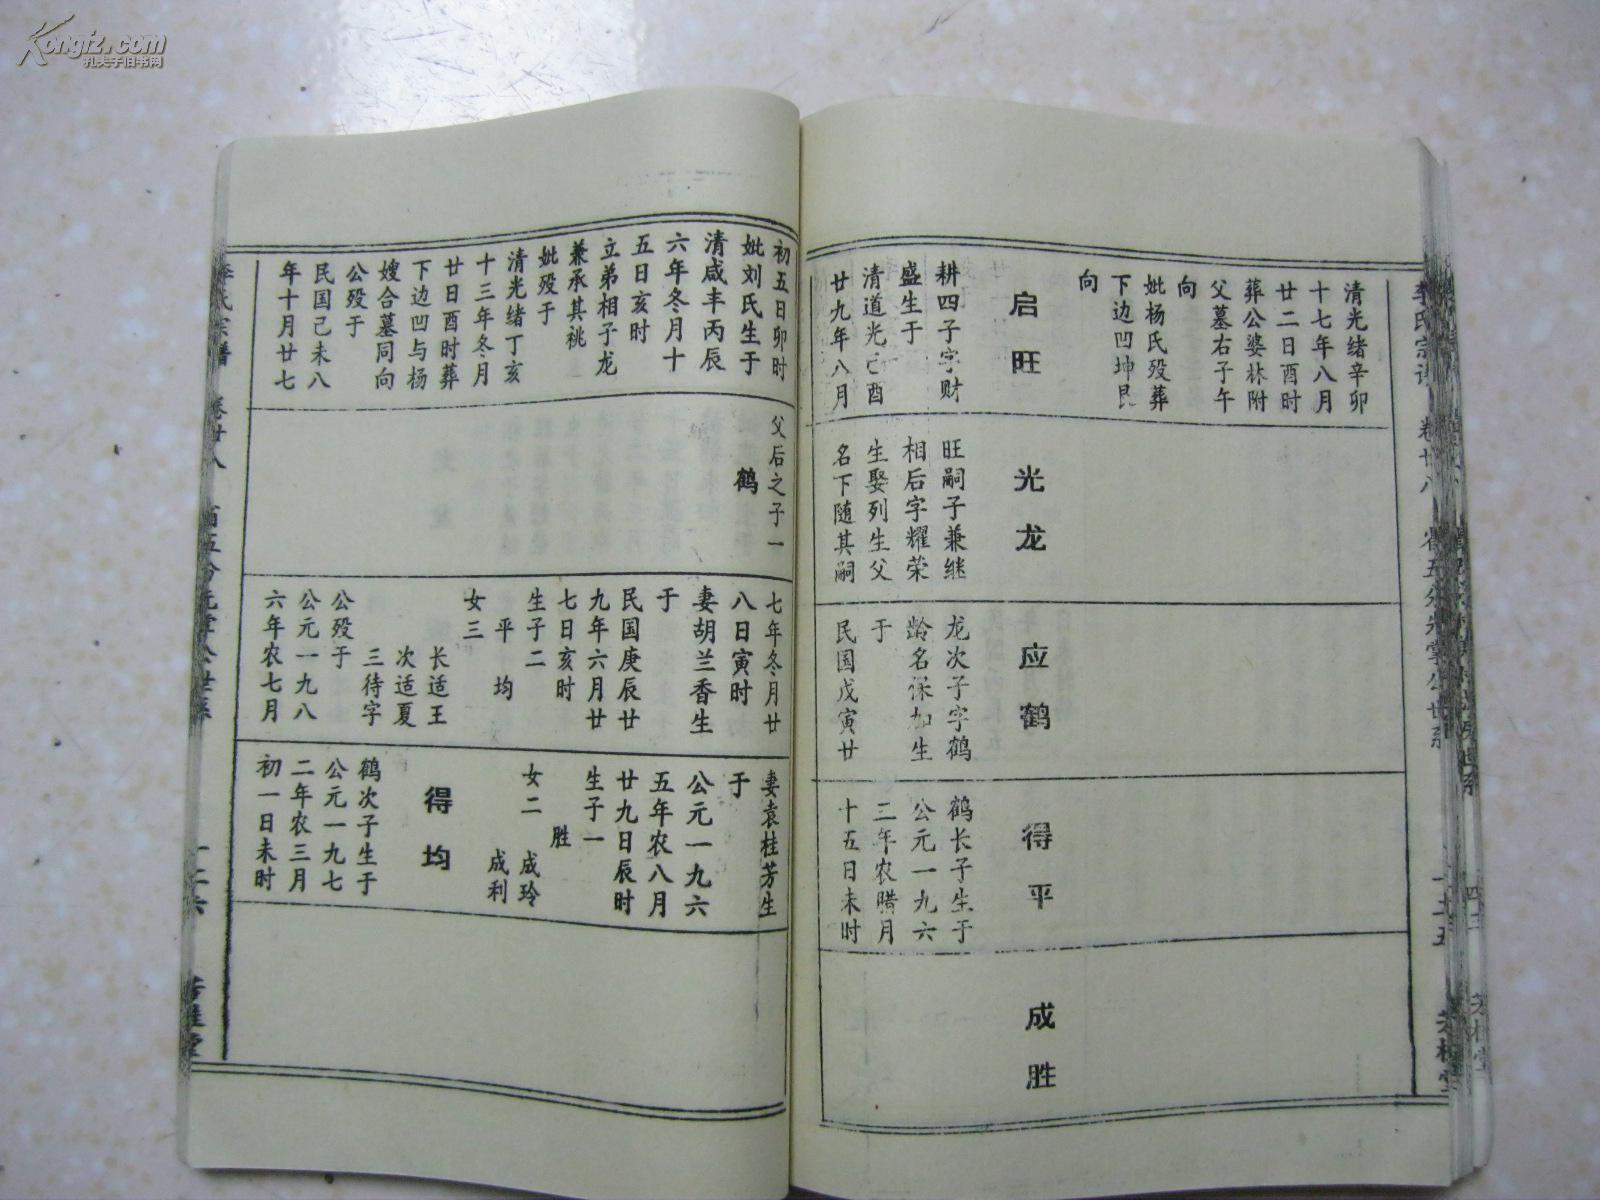 Kongfz.com
孔夫子旧书网
清光绪辛卯
十七年八月
廿二日酉时
葬公婆林附
父墓右子午
向
妣杨氏殁葬
下边凹坤艮
向
启旺
耕四子字财
盛生于
清道光己酉
廿九年八月
光龙
旺嗣子兼继
相后字耀荣
生娶列生父
名下随其嗣
应鹤
龙次子字鹤
龄名保加生
于
民国戊寅廿
得平
鹤长子生于
公元一九六
三年农腊月
十五日未时
成胜
初五日卯时
妣刘氏生于
清咸丰丙辰
六年冬月十
五日亥时
立弟相子龙
兼承其祧
妣殁于
清光绪丁亥
十三年冬月
廿日酉时葬
下边凹与杨
嫂合墓同向
公殁于
民国己未八
年十月廿七
父后之子一
鹤
七年冬月廿
八日寅时
妻胡兰香生
于
民国庚辰廿
九年六月廿
七日亥时
生子二
平 均
女三
长适王
次适夏
三待字
公殁于
公元一九八
六年农七月
妻袁桂芳生
于
公元一九六
五年农八月
廿九日辰时
生子一
胜
女二 成玲
成利
得均
鹤次子生于
公元一九七
二年农三月
初一日未时